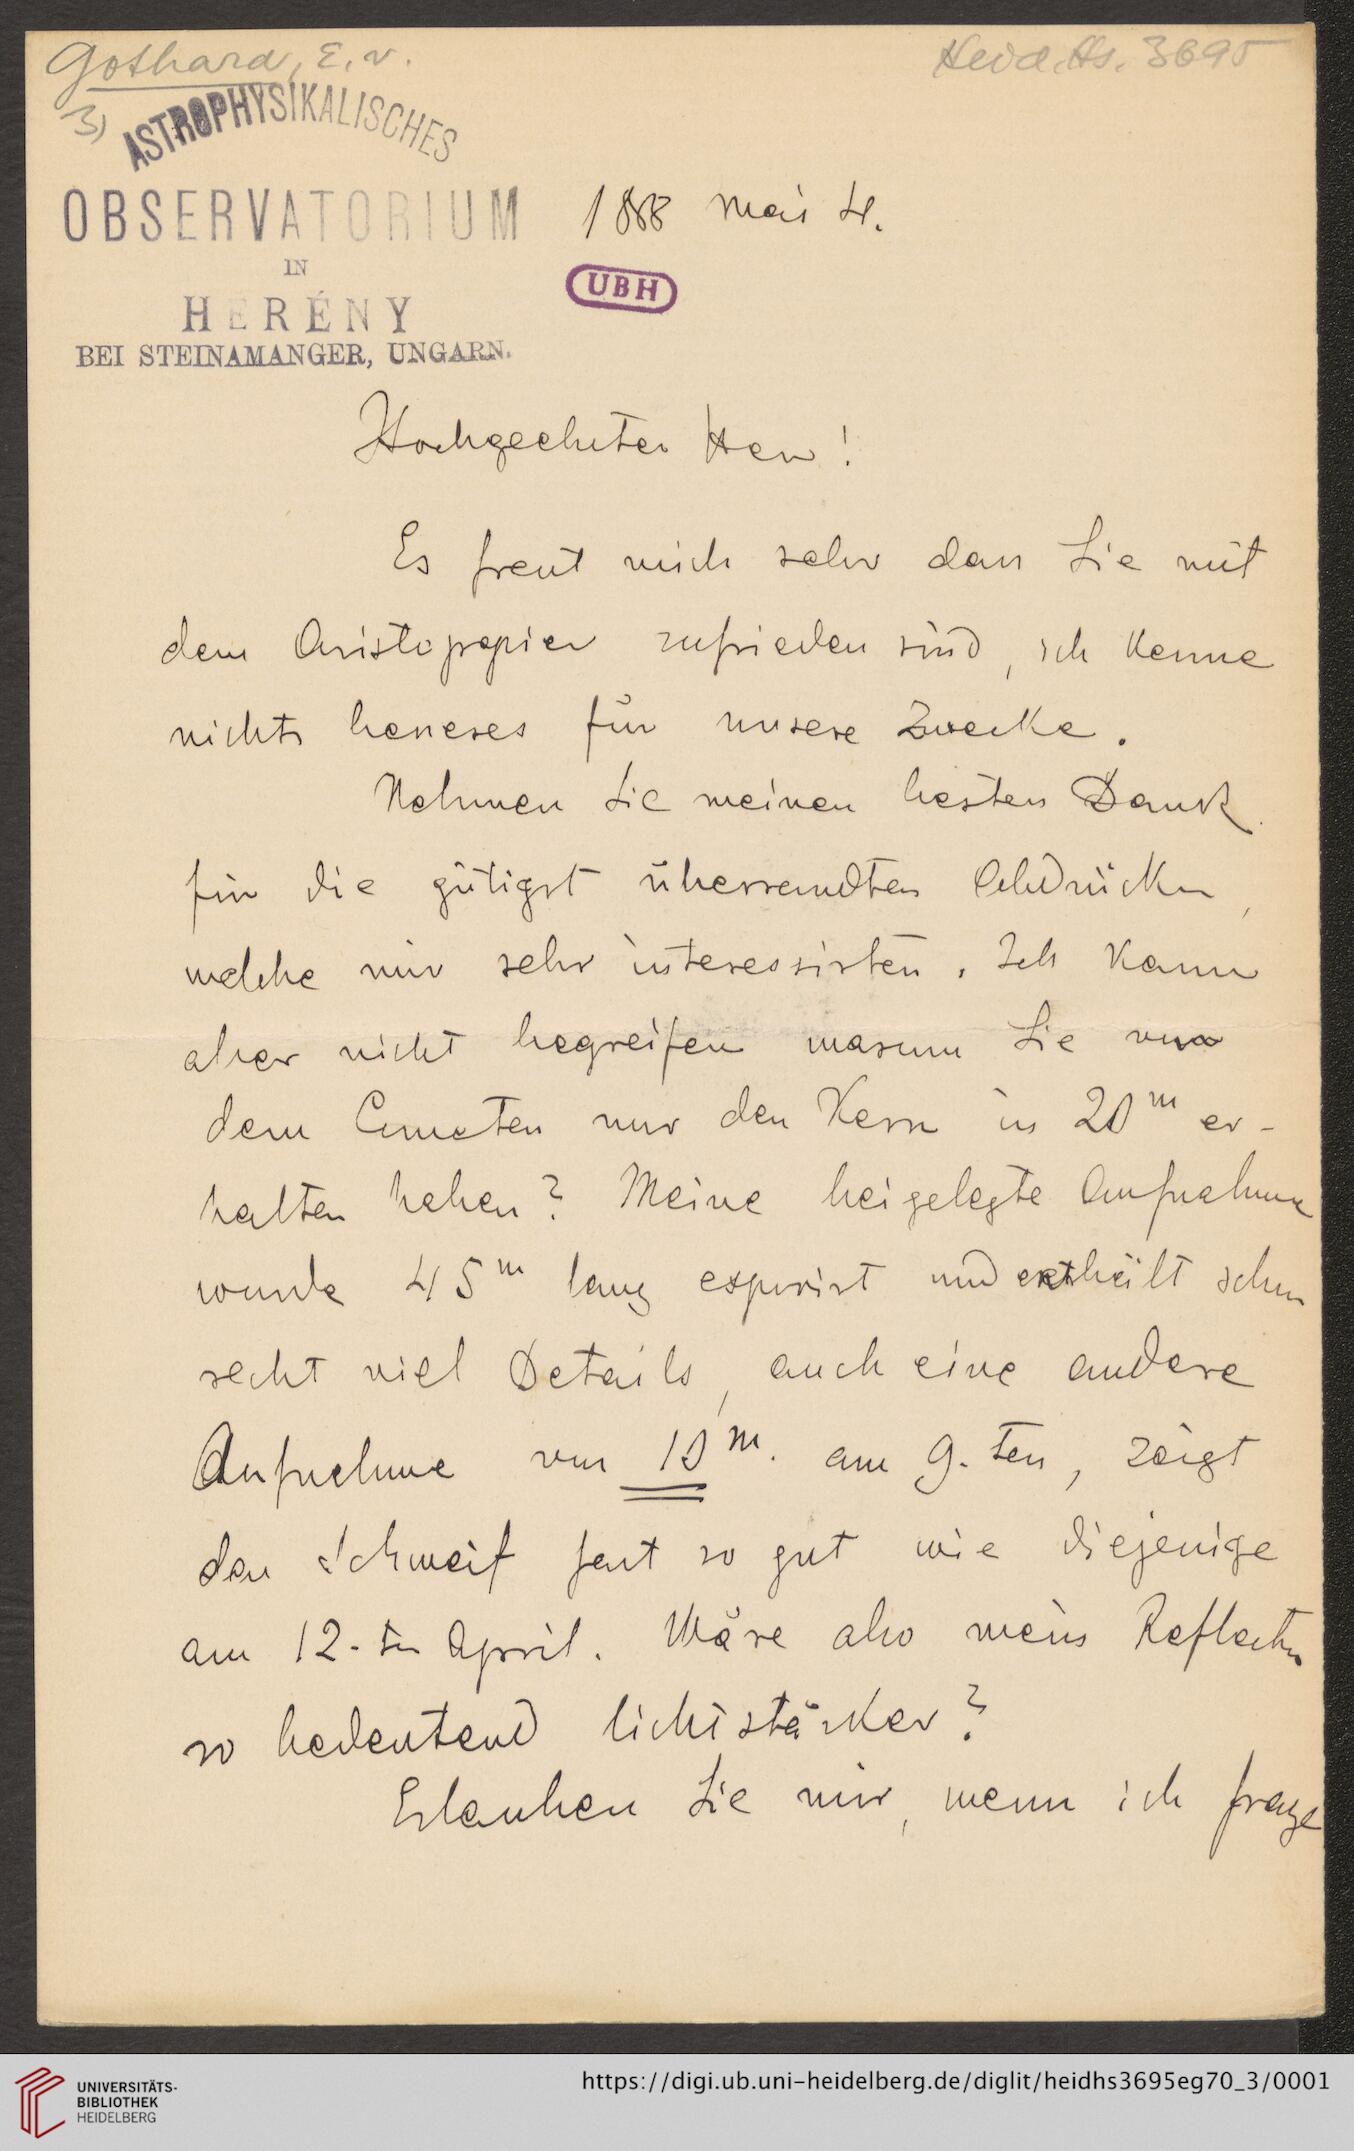 Gothard, E. v.
Heid. Hs. 3695
3)
ASTROPHYSIKALISCHES
OBSERVATORIUM
IN
HERÉNY
BEI STEINAMANGER, UNGARN.
1888 Mai 4.
UBH
Hochgeehrter Herr!
Es freut mich sehr dass Sie mit
dem Aristopapier zufrieden sind, ich kenne
nichts besseres für unsere Zwecke.
Nehmen Sie meinen besten Dank
für die gütigst übersandten Abdrücken,
welche mir sehr interessirten. Ich kann
aber nicht begreifen warum Sie von
dem Cometen nur den Kern in 20m er-
halten haben? Meine beigelegte Aufnahme
wurde 45m lang exponirt und enthält schon
recht viel Details, auch eine andere
Aufnahme von 10m. am 9.ten, zeigt
den Schweif fast so gut wie diejenige
am 12-ten April. Wäre also mein Reflector
so bedeutend lichtstärker?
Erlauben Sie mir, wenn ich frage
UNIVERSITÄTS-
BIBLIOTHEK
HEIDELBERG
https://digi.ub.uni-heidelberg.de/diglit/heidhs3695eg70_3/0001